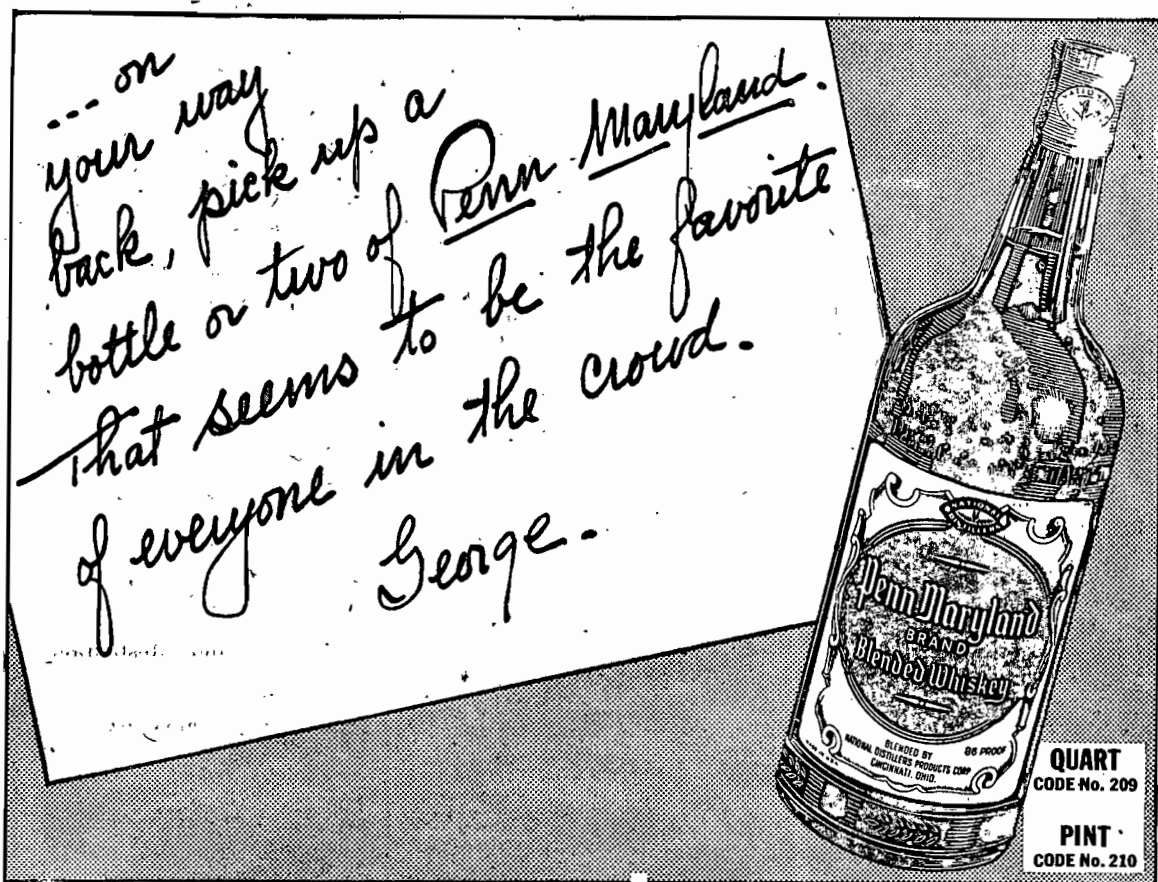 ... on
your way
back, pick up a
bottle or two of Penn Maryland.
That seems to be the favorite
of everyone in the crowd.
George.
Penn Maryland
BRAND
Blended Whiskey
BLENDED BY
NATIONAL DISTILLERS PRODUCTS CORP
CINCINNATI, OHIO.
86 PROOF
MADE IN U.S.A.
QUART
CODE No. 209
PINT
CODE No. 210